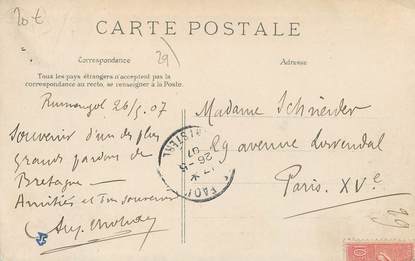 20 t
CARTE POSTALE
29
Correspondance
Tous les pays étrangers n'acceptent pas la
correspondance au recto, se renseigner à la Poste.
Adresse
Rumengol 26/5.07
Souvenir d'un des plus
grands pardons de
Bretagne —
Amitiés et
Madame Schneider
89 avenue
Paris. XVe
FAOU
FINISTERE
26 - 5
07
29
10